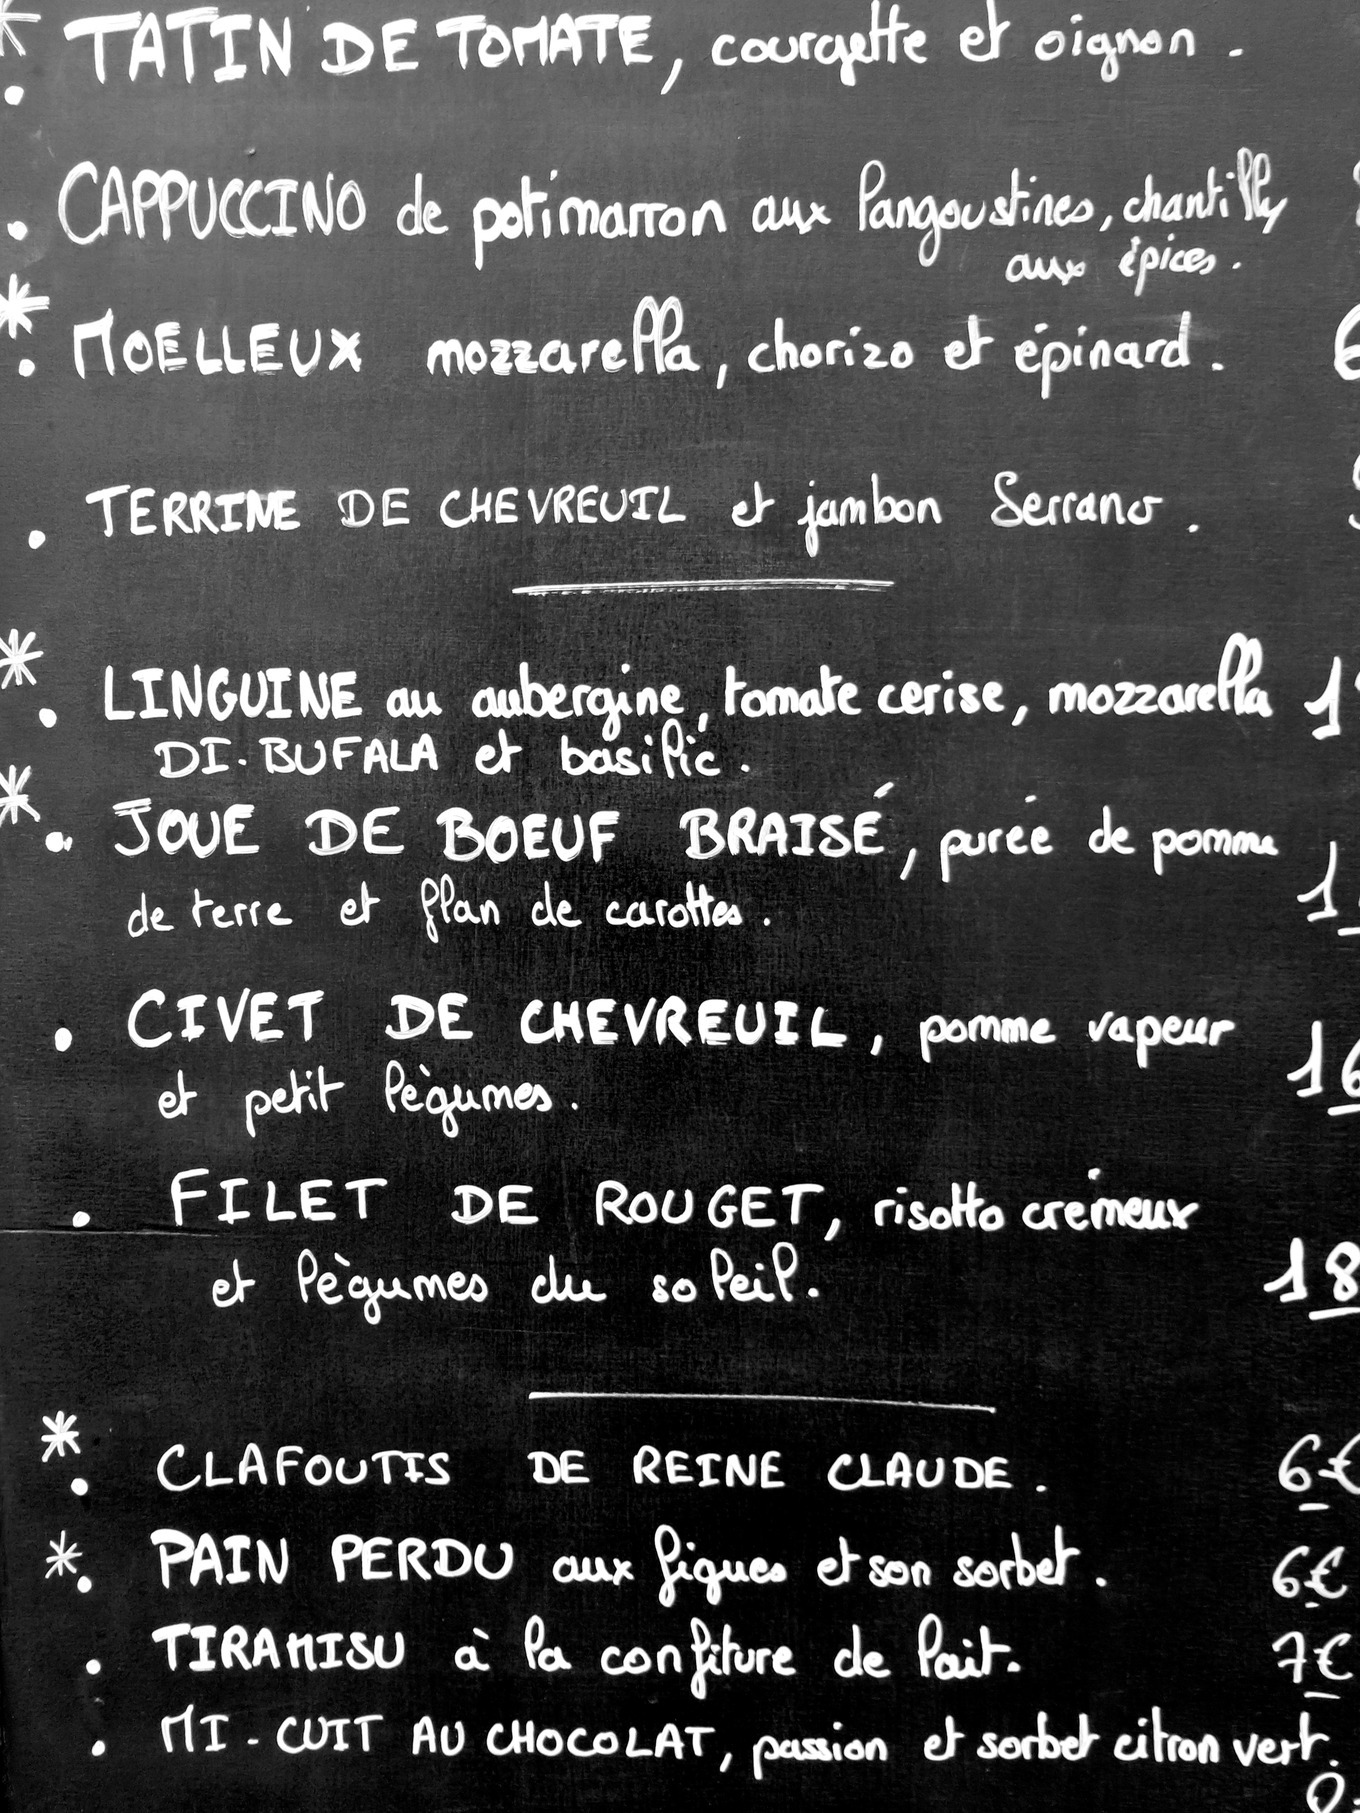 * . TATIN DE TOMATE, courgette et oignon.
. CAPPUCCINO de potimarron aux langoustines, chantilly
aux épices.
* . MOELLEUX mozzarella, chorizo et épinard.
. TERRINE DE CHEVREUIL et jambon Serrano.
* . LINGUINE au aubergine, tomate cerise, mozzarella
DI.BUFALA et basilic.
* . JOUE DE BOEUF BRAISÉ, purée de pomme
de terre et flan de carottes.
. CIVET DE CHEVREUIL, pomme vapeur 16
et petit lègumes.
. FILET DE ROUGET, risotto crémeux
et lègumes du soleil. 18
* . CLAFOUTIS DE REINE CLAUDE. 6€
* . PAIN PERDU aux figues et son sorbet. 6€
. TIRAMISU à la confiture de lait. 7€
. MI-CUIT AU CHOCOLAT, passion et sorbet citron vert.